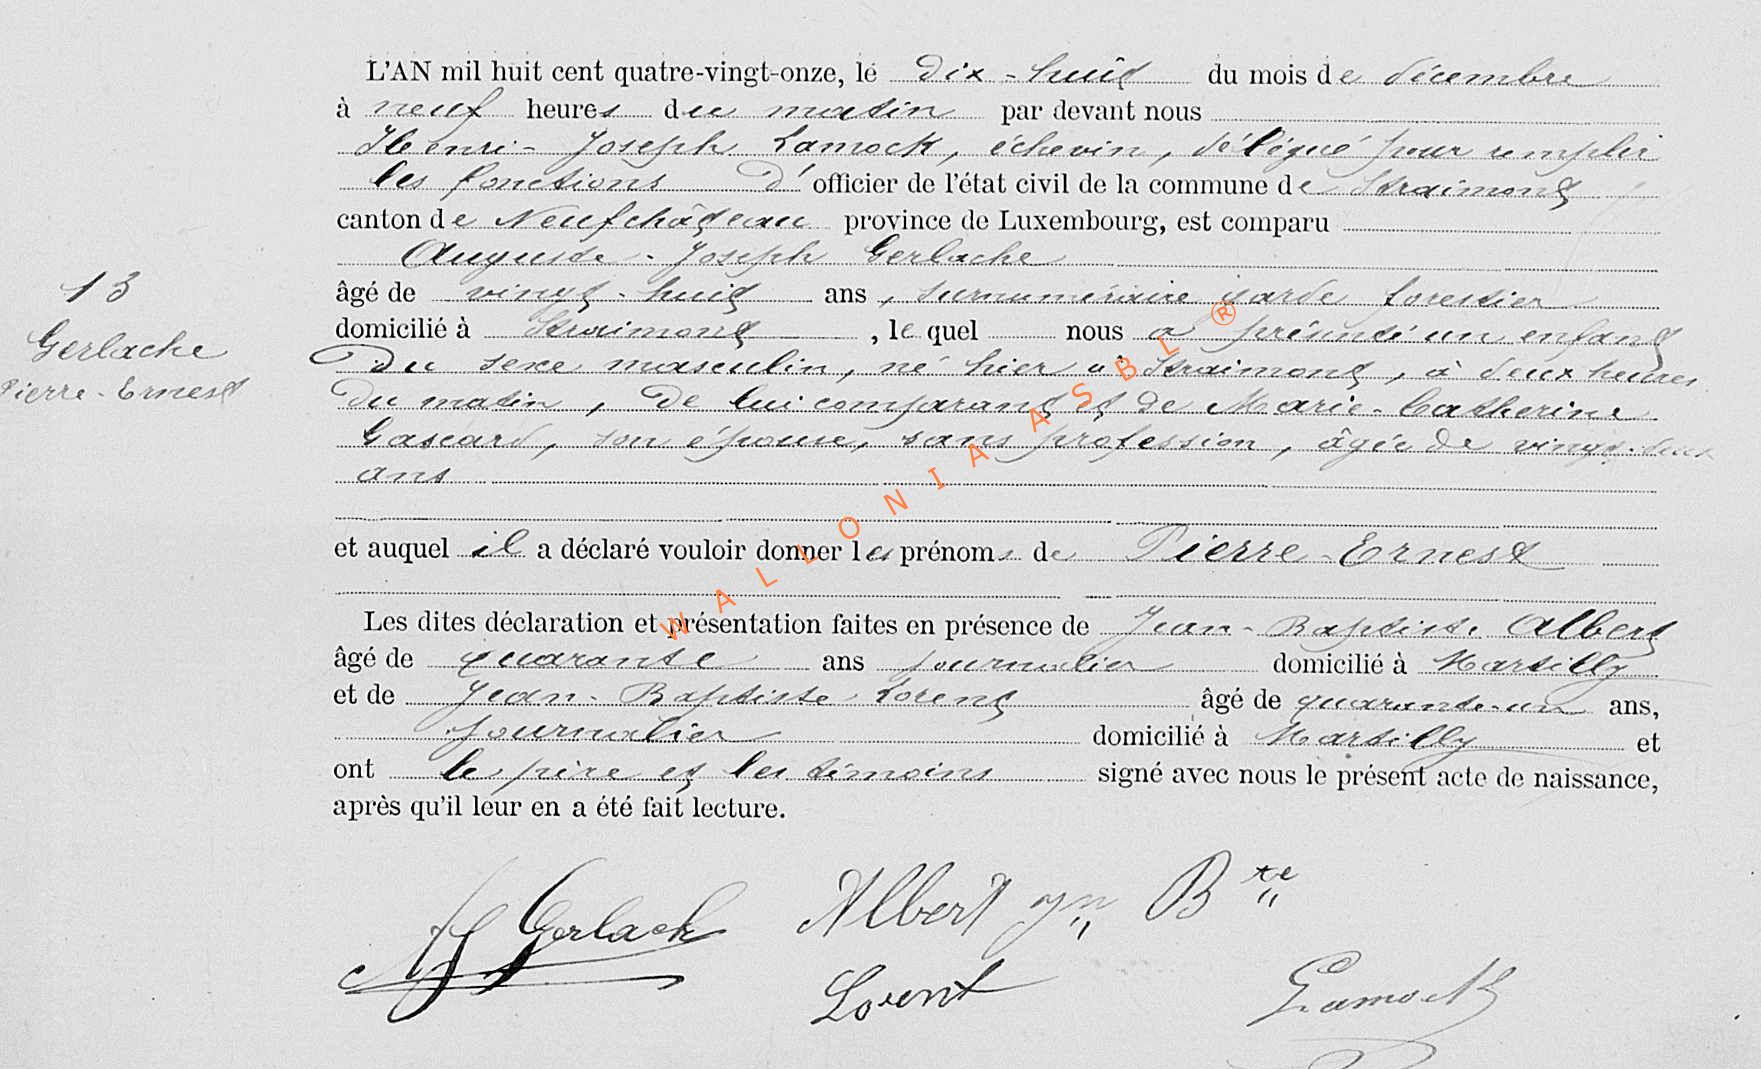 L'AN mil huit cent quatre-vingt-onze, le dix-huit du mois de décembre
à neuf heures du matin par devant nous
Henri-Joseph Lamock, échevin, délégué pour remplir
les fonctions d'officier de l'état civil de la commune de Straimont
canton de Neufchâteau province de Luxembourg, est comparu
Auguste-Joseph Gerlache
13
âgé de vingt-huit ans, surnuméraire garde forestier
domicilié à Straimont, lequel nous a présenté un enfant
Gerlache
du sexe masculin, né hier à Straimont, à deux heures
Pierre-Ernest
du matin, de lui comparant et de Marie-Catherine
Gascard, son épouse, sans profession, âgée de vingt-deux
ans
et auquel il a déclaré vouloir donner les prénoms de Pierre-Ernest
Les dites déclaration et présentation faites en présence de Jean-Baptiste Albert
âgé de quarante ans journalier domicilié à Martilly
et de Jean-Baptiste Lorent âgé de quarante-un ans,
journalier domicilié à Martilly et
ont le père et les témoins signé avec nous le présent acte de naissance,
après qu'il leur en a été fait lecture.
Gerlache Albert Jn Bte
Lorent Lamock
WALLONIA ASBL ®